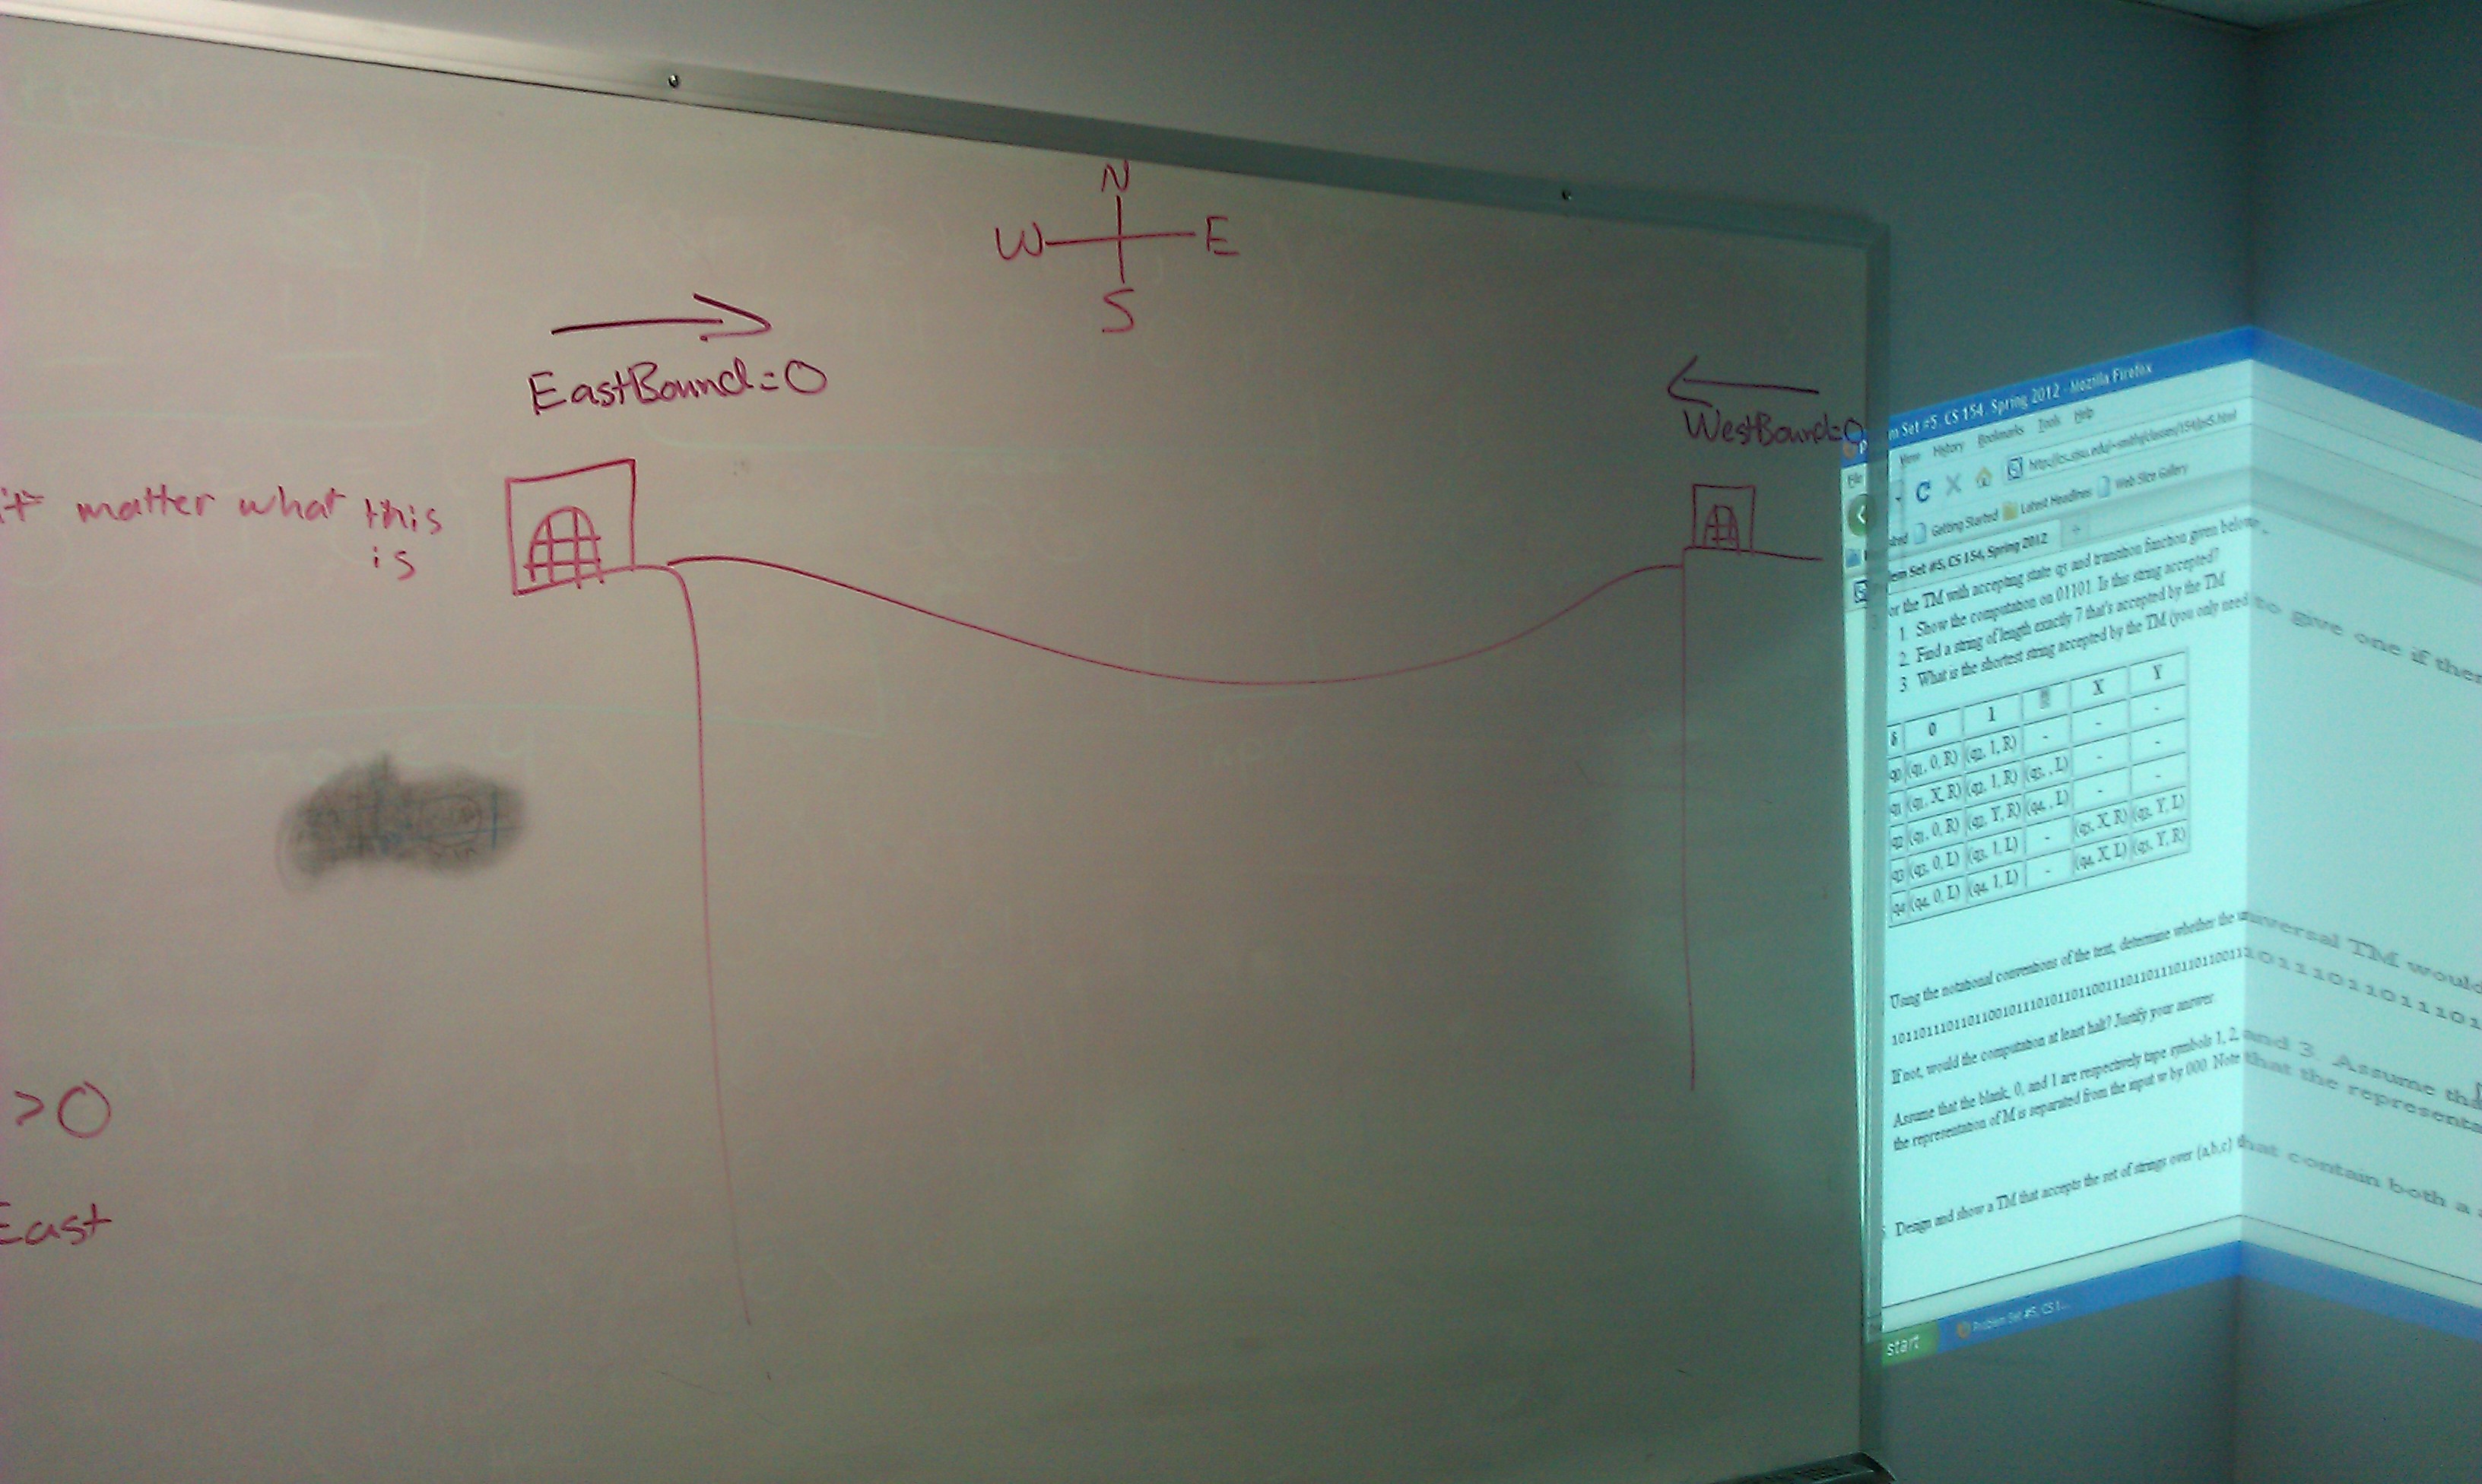 N
W E
S
EastBound=0
WestBound=0
it matter what this
is
>0
East
em Set #5, CS 154, Spring 2012 - Mozilla Firefox
View History Bookmarks Tools Help
Getting Started Latest Headlines Web Slice Gallery
em Set #5, CS 154, Spring 2012
or the TM with accepting state q5 and transition function given below,
1. Show the computation on 01101. Is this string accepted?
2. Find a string of length exactly 7 that's accepted by the TM
3. What is the shortest string accepted by the TM (you only need to give one if ther
δ 0 1 X Y
q0 (q1, 0, R) (q2, 1, R) - - -
q1 (q1, X, R) (q2, 1, R) (q3, , L) - -
q2 (q1, 0, R) (q2, Y, R) (q4, , L) - -
q3 (q3, 0, L) (q3, 1, L) - (q5, X, R) (q3, Y, L)
q4 (q4, 0, L) (q4, 1, L) - (q4, X, L) (q5, Y, R)
Using the notational conventions of the text, determine whether the universal TM would
If not, would the computation at least halt? Justify your answer.
Assume that the blank, 0, and 1 are respectively tape symbols 1, 2, and 3. Assume tha
the representation of M is separated from the input w by 000. Note that the representa
Design and show a TM that accepts the set of strings over (a,b,c) that contain both a
start Problem Set #5, CS 1...